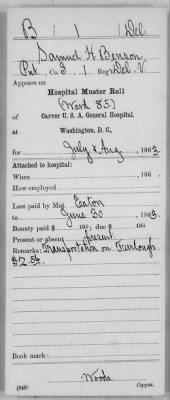 B | 1 | Del.
Samuel H Benson
Pvt., Co. I, 1 Reg't Del. V.
Appears on
Hospital Muster Roll
(Ward 85)
of Carver U. S. A. General Hospital,
at Washington, D. C.,
for July & Aug, 1863.
Attached to hospital:
When , 186
How employed
Last paid by Maj. Eaton
to June 30, 1863.
Bounty paid $ 100; due $ 100
Present or absent present
Remarks: Transportation on Furlough
$2.56.
Book mark:
Woods
(340) Copyist.